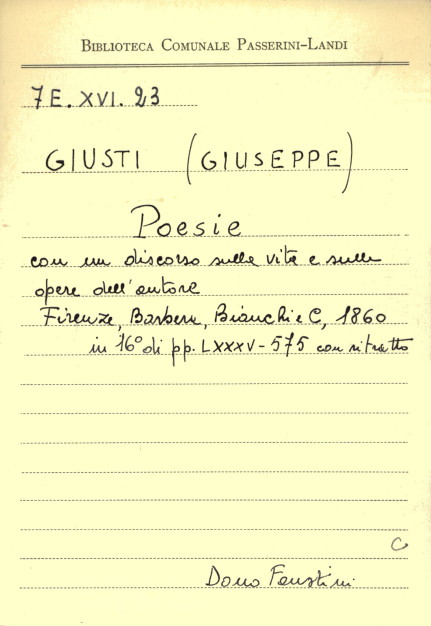 BIBLIOTECA COMUNALE PASSERINI-LANDI
7E. XVI. 23
GIUSTI (GIUSEPPE)
Poesie
con un discorso sulla vita e sulle
opere dell'autore
Firenze, Barbera, Bianchi e C, 1860
in 16° di pp. LXXXV-575 con ritratto
C
Dono Faustini